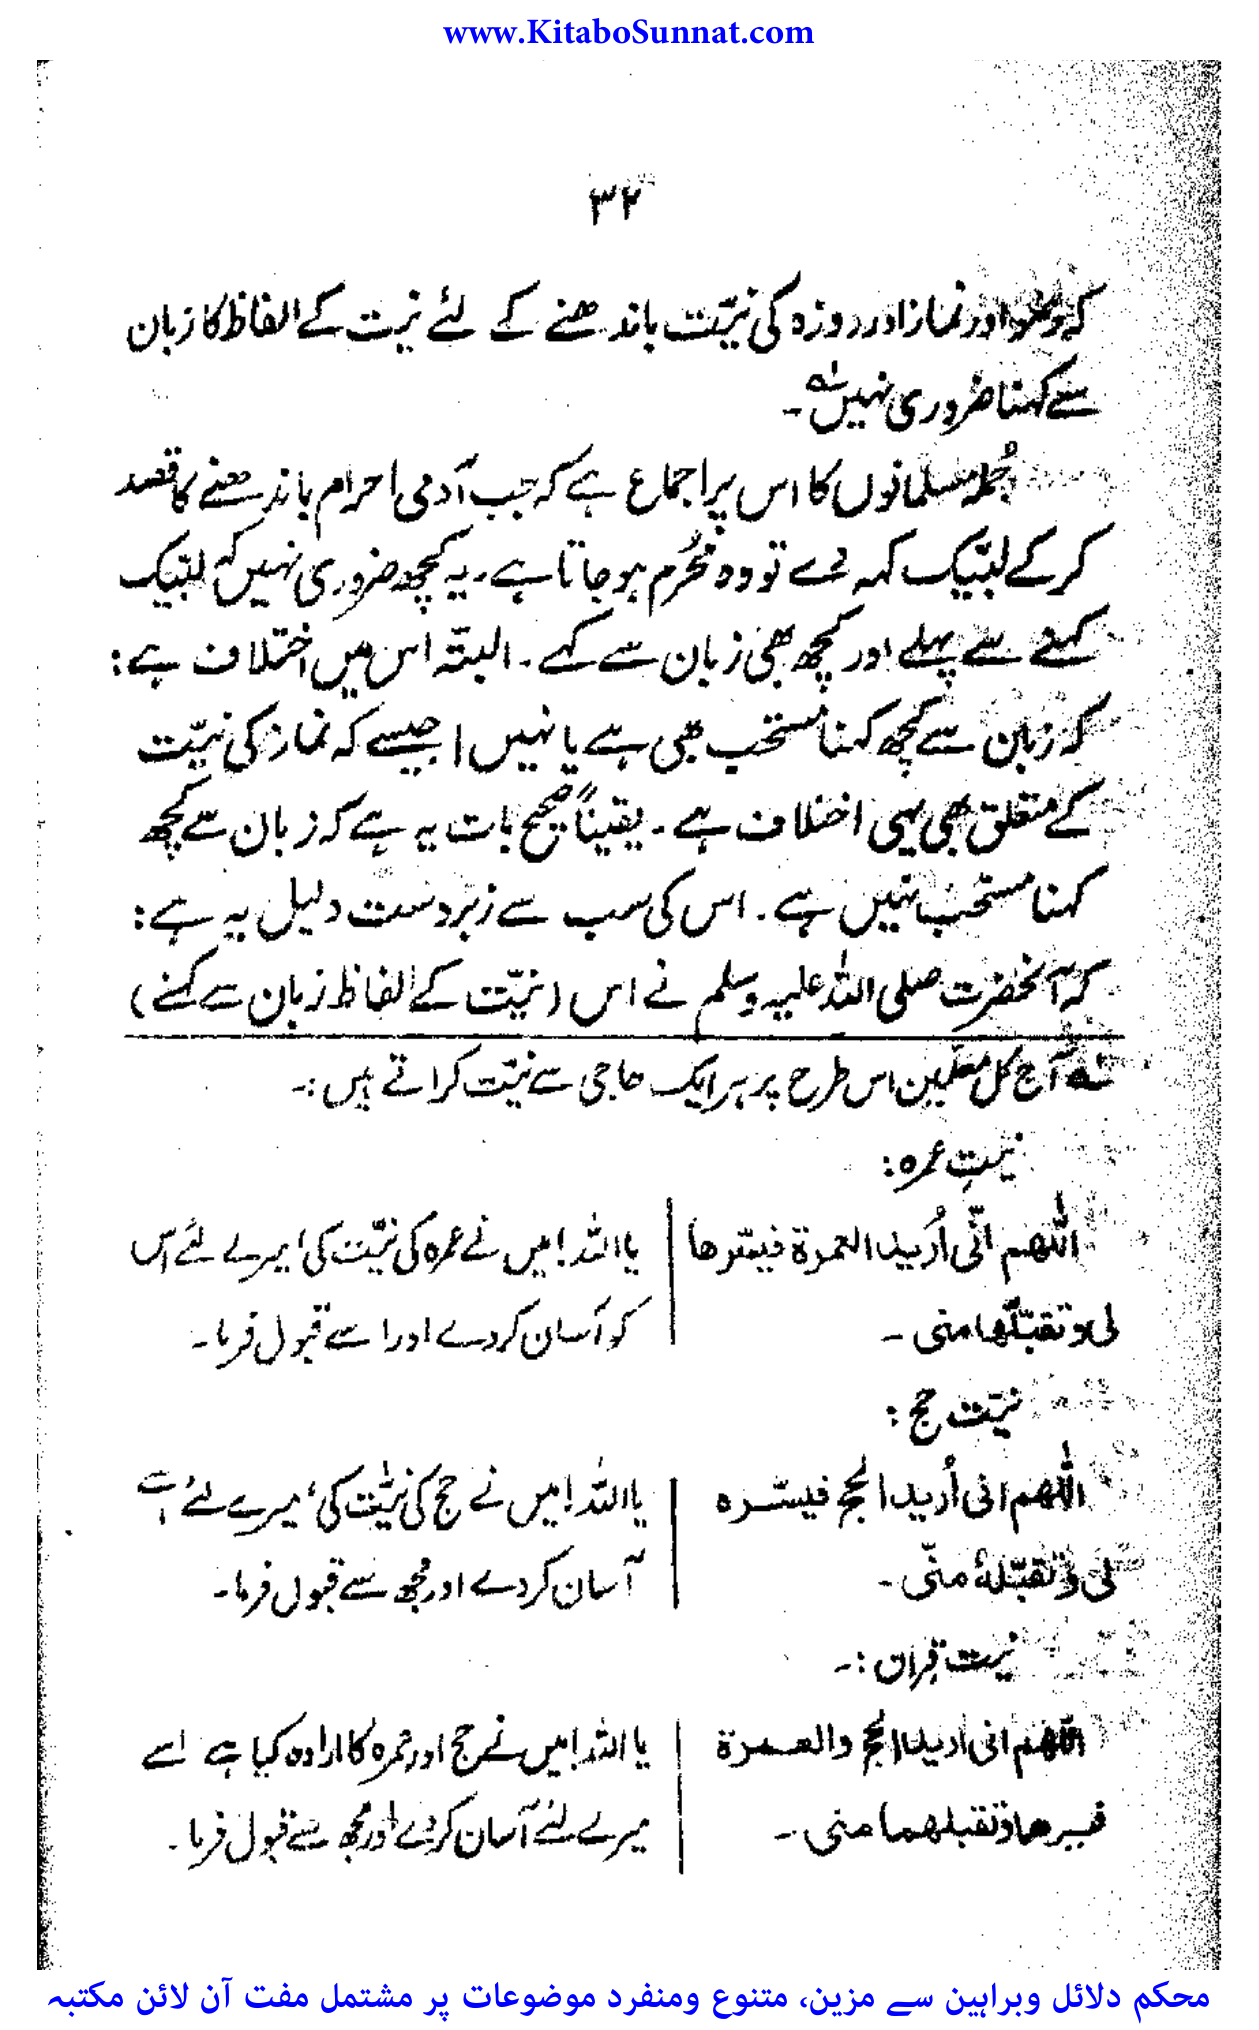 www.KitaboSunnat.com
۳۲
کہ وضو اور نماز اور روزہ کی نیّت باندھنے کے لئے نیت کے الفاظ کا زبان
سے کہنا ضروری نہیں لہ۔
جُملہ مسلمانوں کا اس پر اجماع ہے کہ جب آدمی احرام باندھنے کا قصد
کر کے لبّیک کہہ دے تو وہ مُحْرِم ہو جاتا ہے۔ یہ کچھ ضروری نہیں کہ لبّیک
کہنے سے پہلے اور کچھ بھی زبان سے کہے۔ البتّہ اس میں اختلاف ہے:
کہ زبان سے کچھ کہنا مستحب بھی ہے یا نہیں؟ جیسے کہ نماز کی نیّت
کے متعلق بھی یہی اختلاف ہے۔ یقیناً صحیح بات یہ ہے کہ زبان سے کچھ
کہنا مستحب نہیں ہے۔ اس کی سب سے زبردست دلیل یہ ہے:
کہ آنحضرت صلی اللہ علیہ وسلم نے اس (نیّت کے الفاظ زبان سے کہنے)
لہ آج کل معلمین اس طرح پر ہر ایک حاجی سے نیّت کراتے ہیں:۔
نیتِ عمرہ:
اللّٰهم انّی اُرید العمرة فیسّرها
لی و تقبّلها منی ۔
یا اللہ! میں نے عمرہ کی نیّت کی، میرے لئے اس
کو آسان کر دے اور اسے قبول فرما۔
نیّت حج:
اللّٰهم انی اُرید الحج فیسّره
لی و تقبّلهٗ منّی ۔
یا اللہ! میں نے حج کی نیّت کی، میرے لئے اسے
آسان کر دے اور مجھ سے قبول فرما۔
نیت قِران:۔
اللّٰهم انی ارید الحج والعمرة
فیسرهما وتقبلهما منی ۔
یا اللہ! میں نے حج اور عمرہ کا ارادہ کیا ہے اسے
میرے لئے آسان کر دے اور مجھ سے قبول فرما۔
محکم دلائل وبراہین سے مزین، متنوع ومنفرد موضوعات پر مشتمل مفت آن لائن مکتبہ